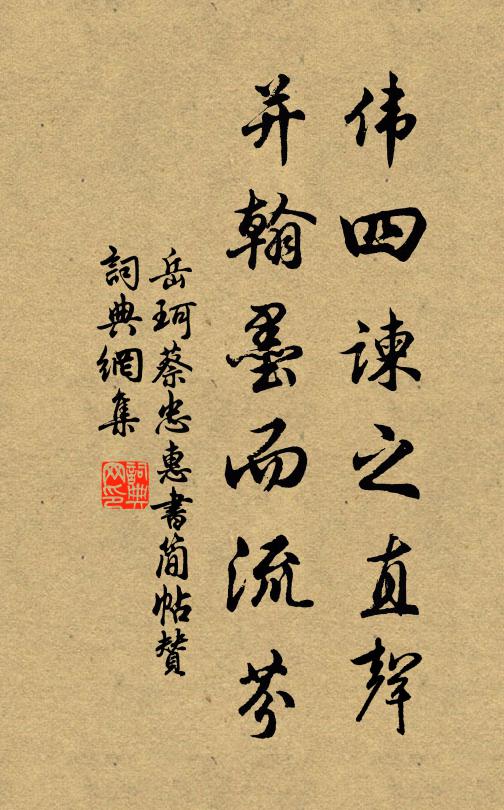 伟四谏之直聲
并翰墨而流芬
岳珂蔡忠惠書简帖賛
詞典網集
詞典网印